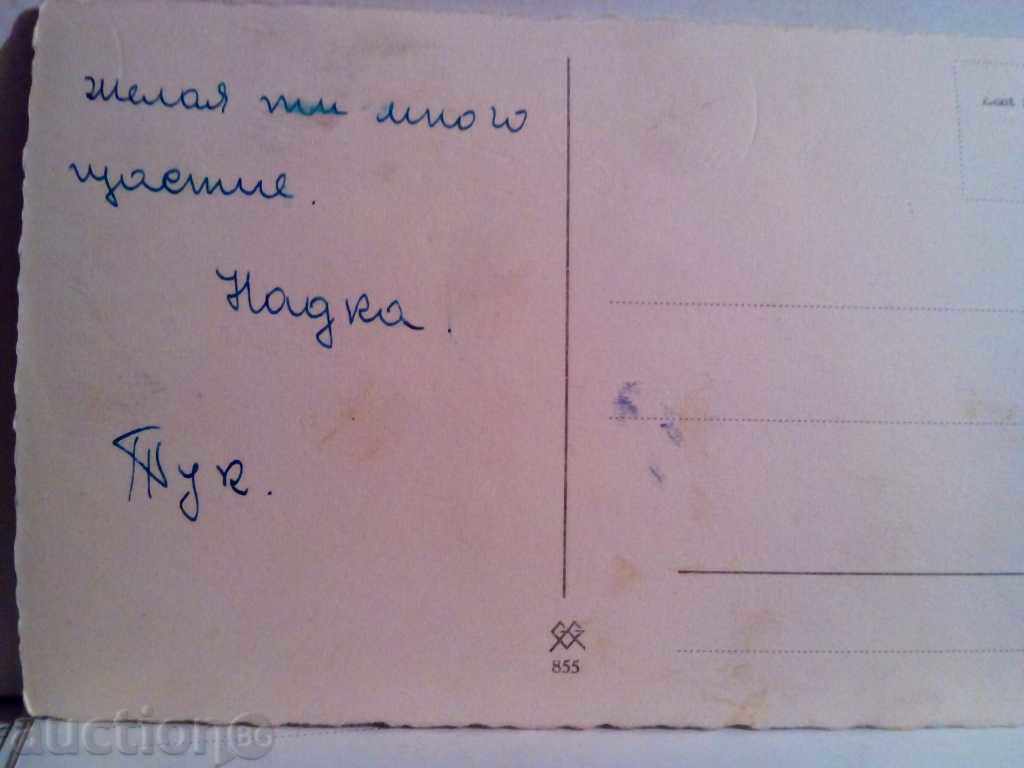 желая ти много
щастие.
Надка.
Тук.
855
auctionBG